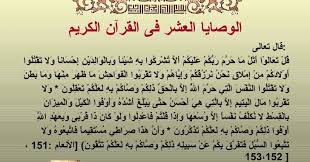 الوصايا العشر فى القرآن الكريم
قال تعالى:
قُلْ تَعَالَوْا أَتْلُ مَا حَرَّمَ رَبُّكُمْ عَلَيْكُمْ أَلَّا تُشْرِكُوا بِهِ شَيْئًا وَبِالْوَالِدَيْنِ إِحْسَانًا وَلَا تَقْتُلُوا
أَوْلَادَكُمْ مِنْ إِمْلَاقٍ نَحْنُ نَرْزُقُكُمْ وَإِيَّاهُمْ وَلَا تَقْرَبُوا الْفَوَاحِشَ مَا ظَهَرَ مِنْهَا وَمَا بَطَنَ
وَلَا تَقْتُلُوا النَّفْسَ الَّتِي حَرَّمَ اللَّهُ إِلَّا بِالْحَقِّ ذَلِكُمْ وَصَّاكُمْ بِهِ لَعَلَّكُمْ تَعْقِلُونَ * وَلَا
تَقْرَبُوا مَالَ الْيَتِيمِ إِلَّا بِالَّتِي هِيَ أَحْسَنُ حَتَّى يَبْلُغَ أَشُدَّهُ وَأَوْفُوا الْكَيْلَ وَالْمِيزَانَ
بِالْقِسْطِ لَا نُكَلِّفُ نَفْسًا إِلَّا وُسْعَهَا وَإِذَا قُلْتُمْ فَاعْدِلُوا وَلَوْ كَانَ ذَا قُرْبَى وَبِعَهْدِ اللَّهِ
أَوْفُوا ذَلِكُمْ وَصَّاكُمْ بِهِ لَعَلَّكُمْ تَذَكَّرُونَ * وَأَنَّ هَذَا صِرَاطِي مُسْتَقِيمًا فَاتَّبِعُوهُ وَلَا
تَتَّبِعُوا السُّبُلَ فَتَفَرَّقَ بِكُمْ عَنْ سَبِيلِهِ ذَلِكُمْ وَصَّاكُمْ بِهِ لَعَلَّكُمْ تَتَّقُونَ) [الأنعام :151 ،
152،153 ]